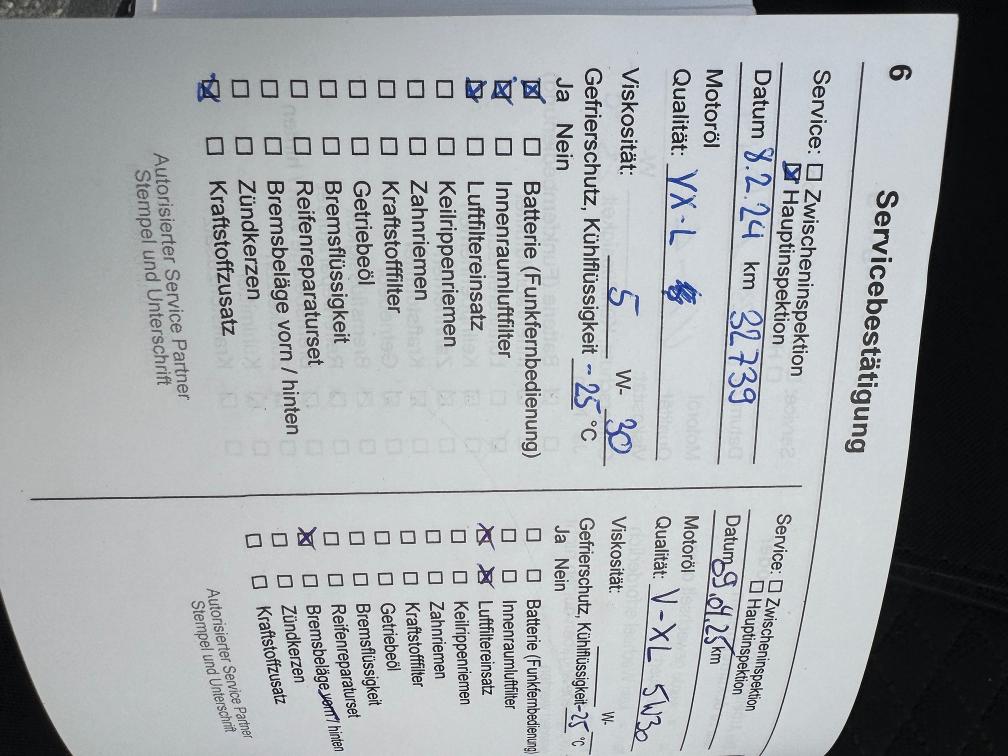 6
Servicebestätigung
Service: ☐ Zwischeninspektion
☒ Hauptinspektion
Datum 8.2.24 km 32739
Motoröl
Qualität: VX-L
Viskosität: 5 W- 30
Gefrierschutz, Kühlflüssigkeit -25 °C
Ja Nein
☒ ☐ Batterie (Funkfernbedienung)
☒ ☐ Innenraumluftfilter
☒ ☐ Luftfiltereinsatz
☐ ☐ Keilrippenriemen
☐ ☐ Zahnriemen
☐ ☐ Kraftstofffilter
☐ ☐ Getriebeöl
☐ ☐ Bremsflüssigkeit
☐ ☐ Reifenreparaturset
☐ ☐ Bremsbeläge vorn / hinten
☐ ☐ Zündkerzen
☒ ☐ Kraftstoffzusatz
Autorisierter Service Partner
Stempel und Unterschrift
Service: ☐ Zwischeninspektion
☐ Hauptinspektion
Datum 09.04.25 km
Motoröl
Qualität: V-XL 5W30
Viskosität: W-
Gefrierschutz, Kühlflüssigkeit -25 °C
Ja Nein
☐ ☐ Batterie (Funkfernbedienung)
☐ ☐ Innenraumluftfilter
☒ ☒ Luftfiltereinsatz
☐ ☐ Keilrippenriemen
☐ ☐ Zahnriemen
☐ ☐ Kraftstofffilter
☐ ☐ Getriebeöl
☐ ☐ Bremsflüssigkeit
☐ ☐ Reifenreparaturset
☒ ☐ Bremsbeläge vorn / hinten
☐ ☐ Zündkerzen
☐ ☐ Kraftstoffzusatz
Autorisierter Service Partner
Stempel und Unterschrift